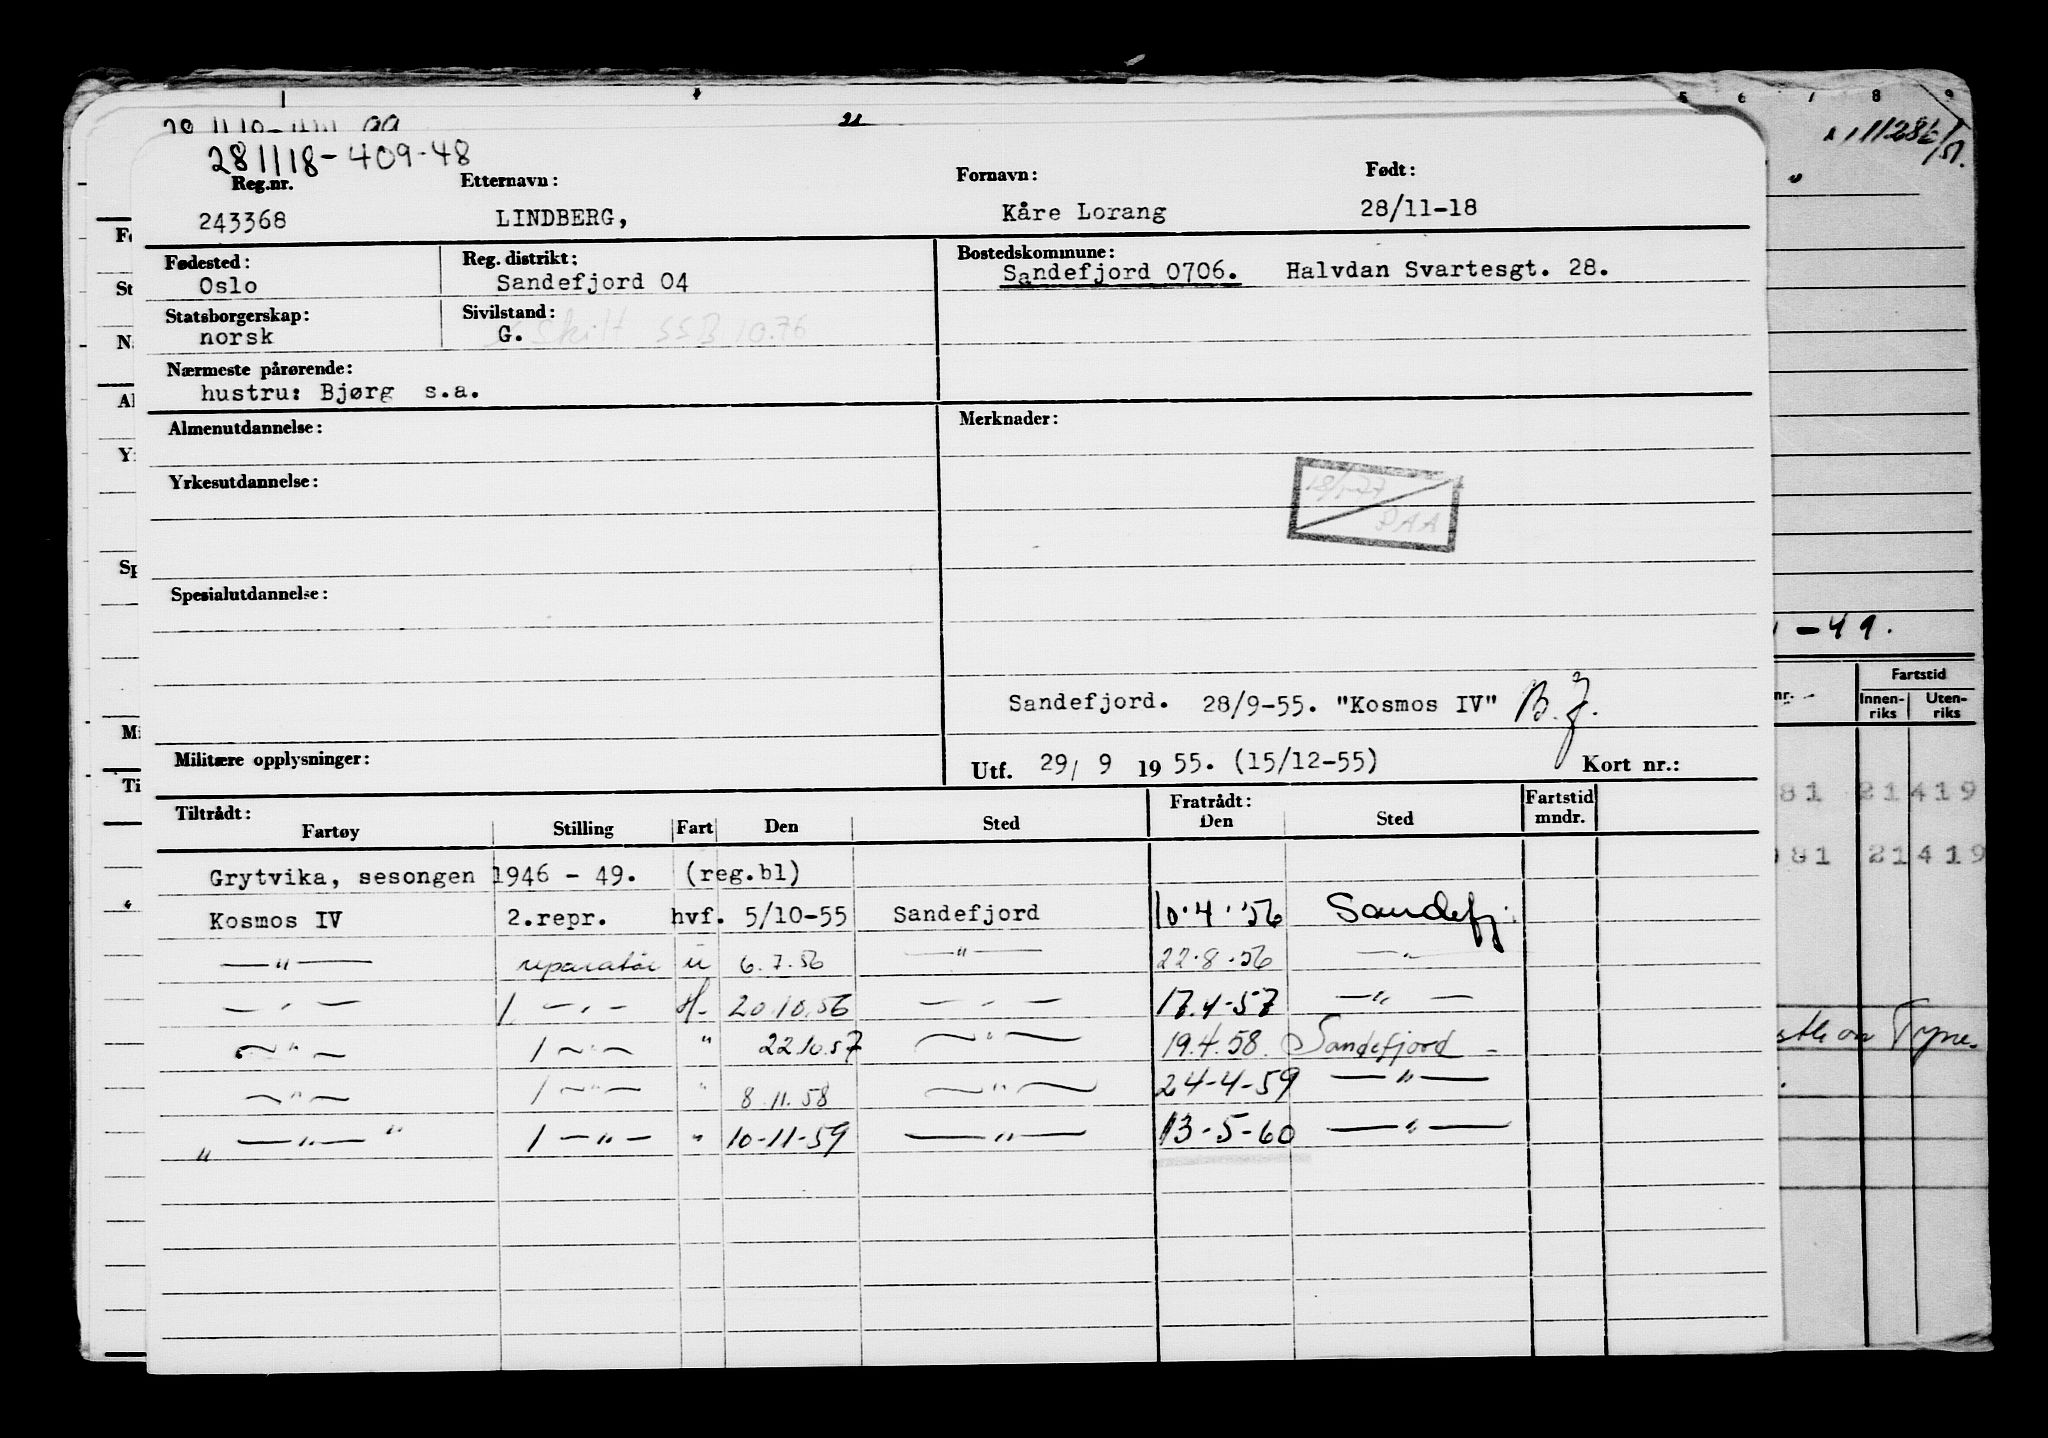 21
281118-409-48
Reg.nr. Etternavn: Fornavn: Født:
243368 LINDBERG, Kåre Lorang 28/11-18
Fødested: Reg. distrikt: Bostedskommune:
Oslo Sandefjord 04 Sandefjord 0706. Halvdan Svartesgt. 28.
Statsborgerskap: Sivilstand:
norsk G. Skilt SSB 10.76
Nærmeste pårørende:
hustru: Bjørg s.a.
Almenutdannelse: Merknader:
Yrkesutdannelse:
18/1-77
PAA
Spesialutdannelse:
Sandefjord. 28/9-55. "Kosmos IV" B.J.
Militære opplysninger: Utf. 29/ 9 19 55. (15/12-55) Kort nr.:
Tiltrådt: Fratrådt: Fartstid
Fartøy Stilling Fart Den Sted Den Sted mndr.
Grytvika, sesongen 1946 - 49. (reg.bl)
Kosmos IV 2.repr. hvf. 5/10-55 Sandefjord 10.4.'56 Sandefj.
—"— reparatør u 6.7.56 —"— 22.8.56 —"—
—"— 1. —"— H. 20.10.56 —"— 17.4-57 —"—
—"— 1 —"— " 22.10.57 —"— 19.4.58. Sandefjord
—"— 1 —"— " 8.11.58 —"— 24-4-59 —"—
" —"— " 1 —"— " 10-11-59 —"— 13-5-60 —"—
5 6 7 8 9
-49.
nr. Fartstid
Innen-riks Uten-riks
81 21419
981 21419
on Tyne.